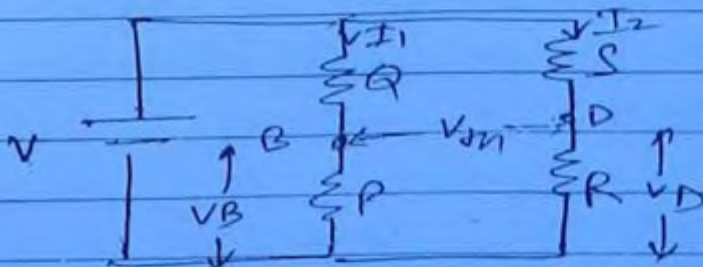 I₁ I₂
Q S
V B D
VB P R VD